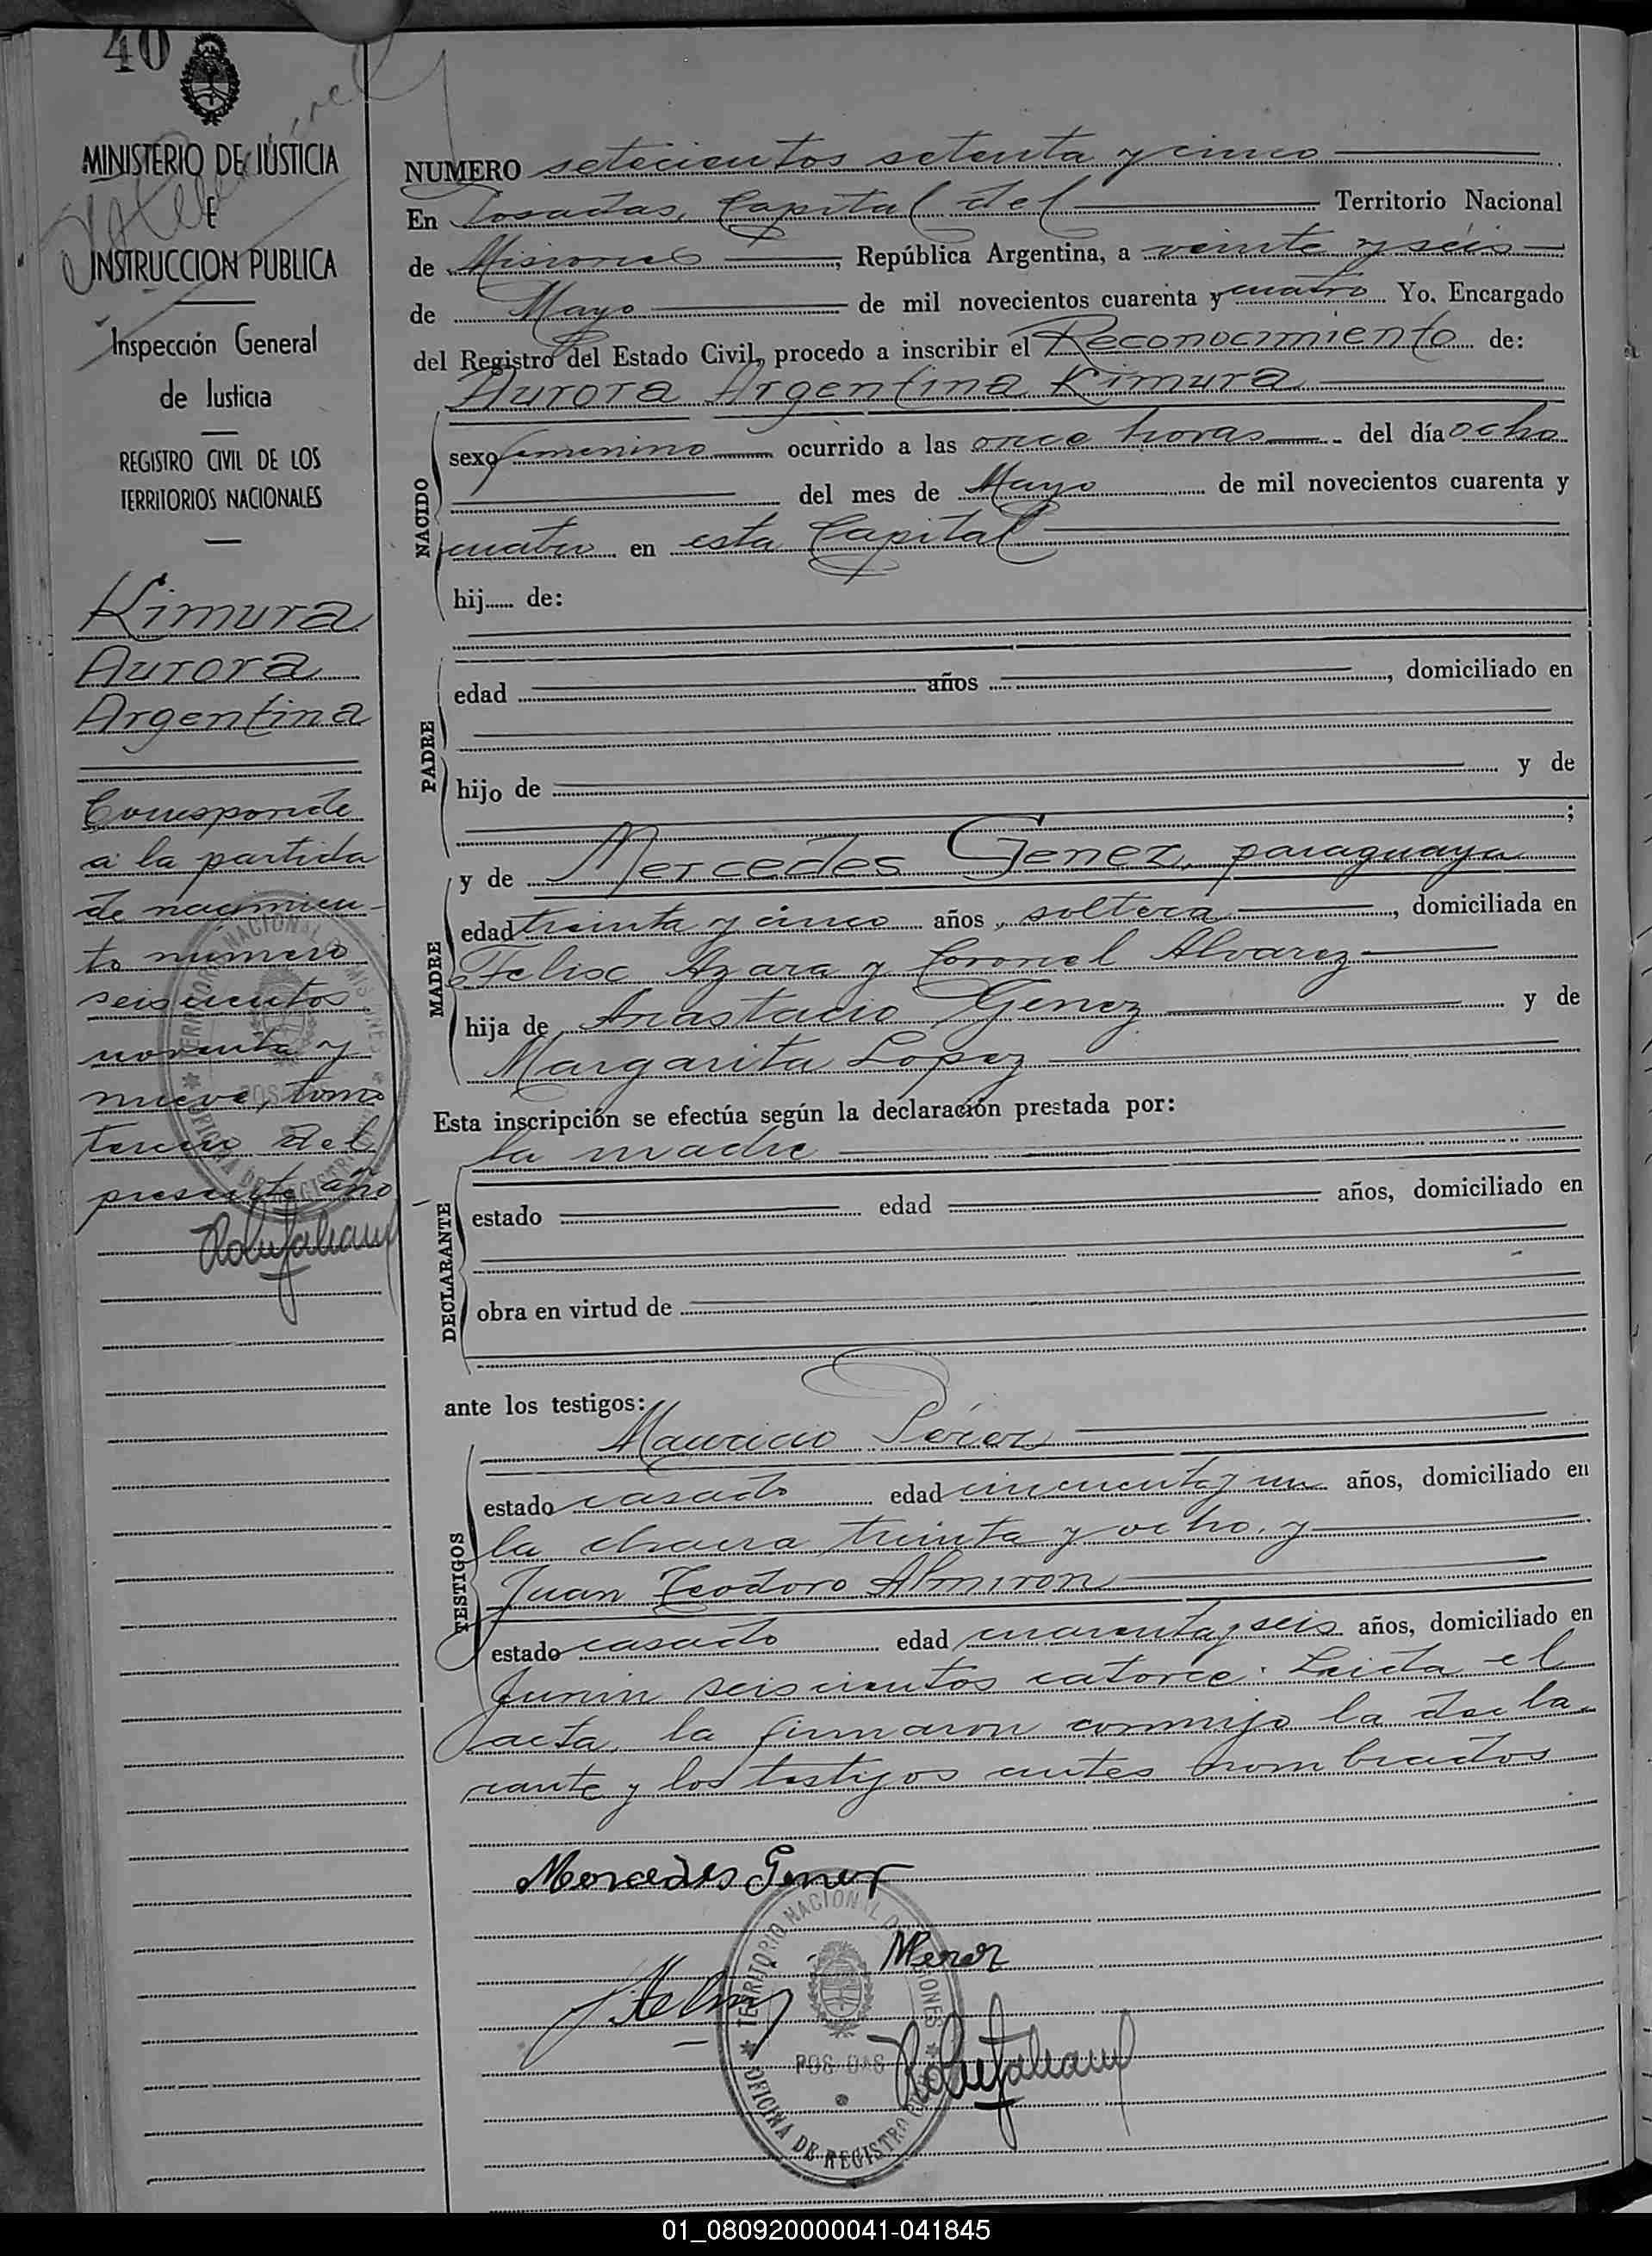 40
MINISTERIO DE JUSTICIA
E
INSTRUCCION PUBLICA
Inspección General
de Justicia
REGISTRO CIVIL DE LOS
TERRITORIOS NACIONALES
Kimura
Aurora
Argentina
Corresponde
a la partida
de nacimien-
to número
seiscientos
noventa y
nueve, tomo
tercero del
presente año
NUMERO setecientos setenta y cinco
En Posadas, Capital del Territorio Nacional
de Misiones, República Argentina, a veinte y séis
de Mayo de mil novecientos cuarenta y cuatro Yo. Encargado
del Registro del Estado Civil, procedo a inscribir el Reconocimiento de:
Aurora Argentina Kimura
NACIDO
sexo femenino ocurrido a las once horas del día ocho
del mes de Mayo de mil novecientos cuarenta y
cuatro en esta Capital
hij...... de:
PADRE
edad años , domiciliado en
hijo de y de
;
MADRE
y de Mercedes Genez, paraguaya
edad treinta y cinco años, soltera, domiciliada en
Felix Azara y Coronel Alvarez
hija de Anastacio Genez y de
Margarita Lopez
Esta inscripción se efectúa según la declaración prestada por:
la madre
DECLARANTE
estado edad años, domiciliado en
obra en virtud de
ante los testigos:
TESTIGOS
Mauricio Pérez
estado casado edad cincuenta y un años, domiciliado en
la chacra treinta y ocho, y
Juan Teodoro Almiron
estado casado edad cuarenta y seis años, domiciliado en
Junin seiscientos catorce. Leida el
acta, la firmaron conmigo la decla-
rante y los testigos antes nombrados
Mercedes Genez
TERRITORIO NACIONAL DE MISIONES
POSADAS
OFICINA DE REGISTRO CIVIL
01_080920000041-041845